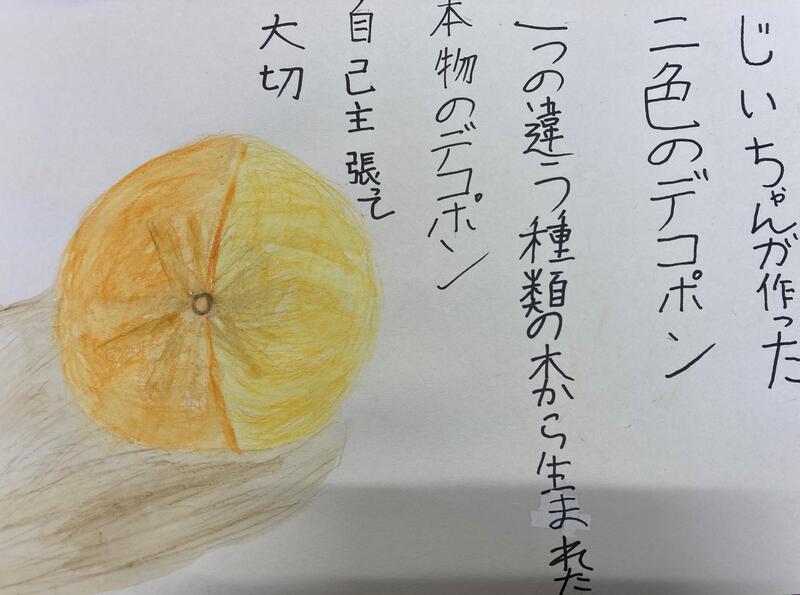 じいちゃんが作った
二色のデコポン
一つの違う種類の木から生まれた
本物のデコポン
自己主張って
大切